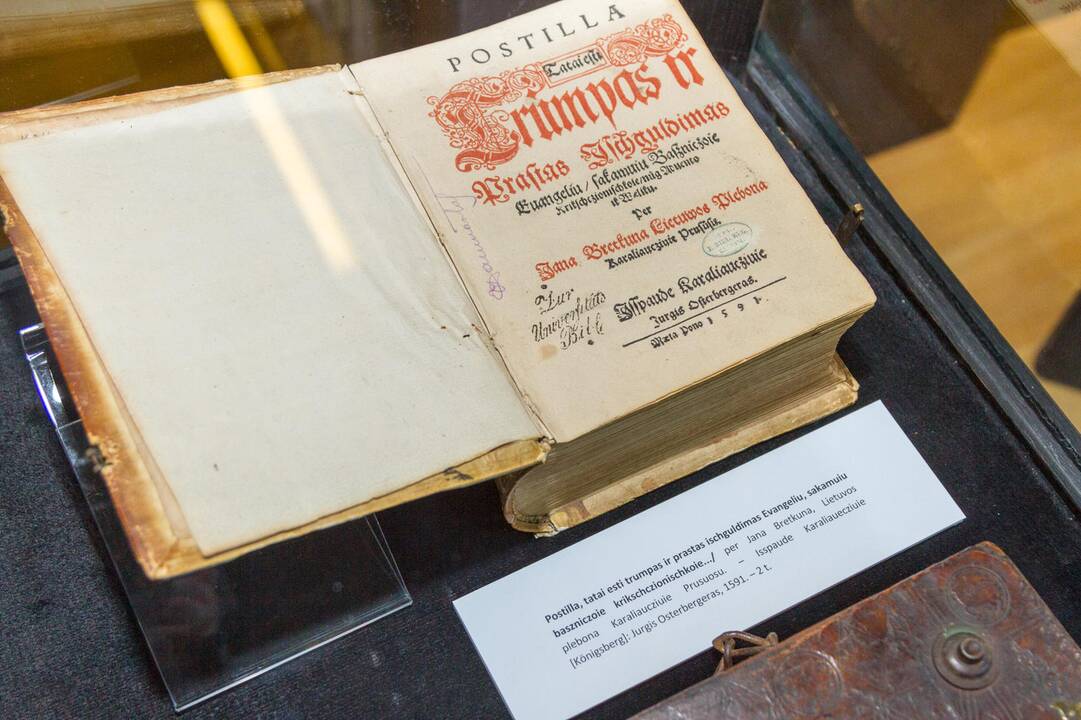 POSTILLA
Tatai esti
Trumpas ir
Prastas Ischguldimas
Euangeliu / sakamuiu Baszniczoie
Krikschczionischkoie / nůg Aduento
ik Waliku.
Per
Jana Bretkuna Lietuwos Plebona
Karaliaucziuie Prusůsu.
Zur
Universitäts
Bibl.
Isspaude Karaliaucziuie
Jurgis Osterbergeras.
Mæta Pono 1591.
Postilla, tatai esti trumpas ir prastas ischguldimas Evangeliu, sakamuiu
baszniczoie krikschczionischkoie.../ per Jana Bretkuna, Lietuvos
plebona Karaliaucziuie Prusuosu. – Isspaude Karaliaueziuie
[Königsberg]: Jurgis Osterbergeras, 1591. – 2 t.